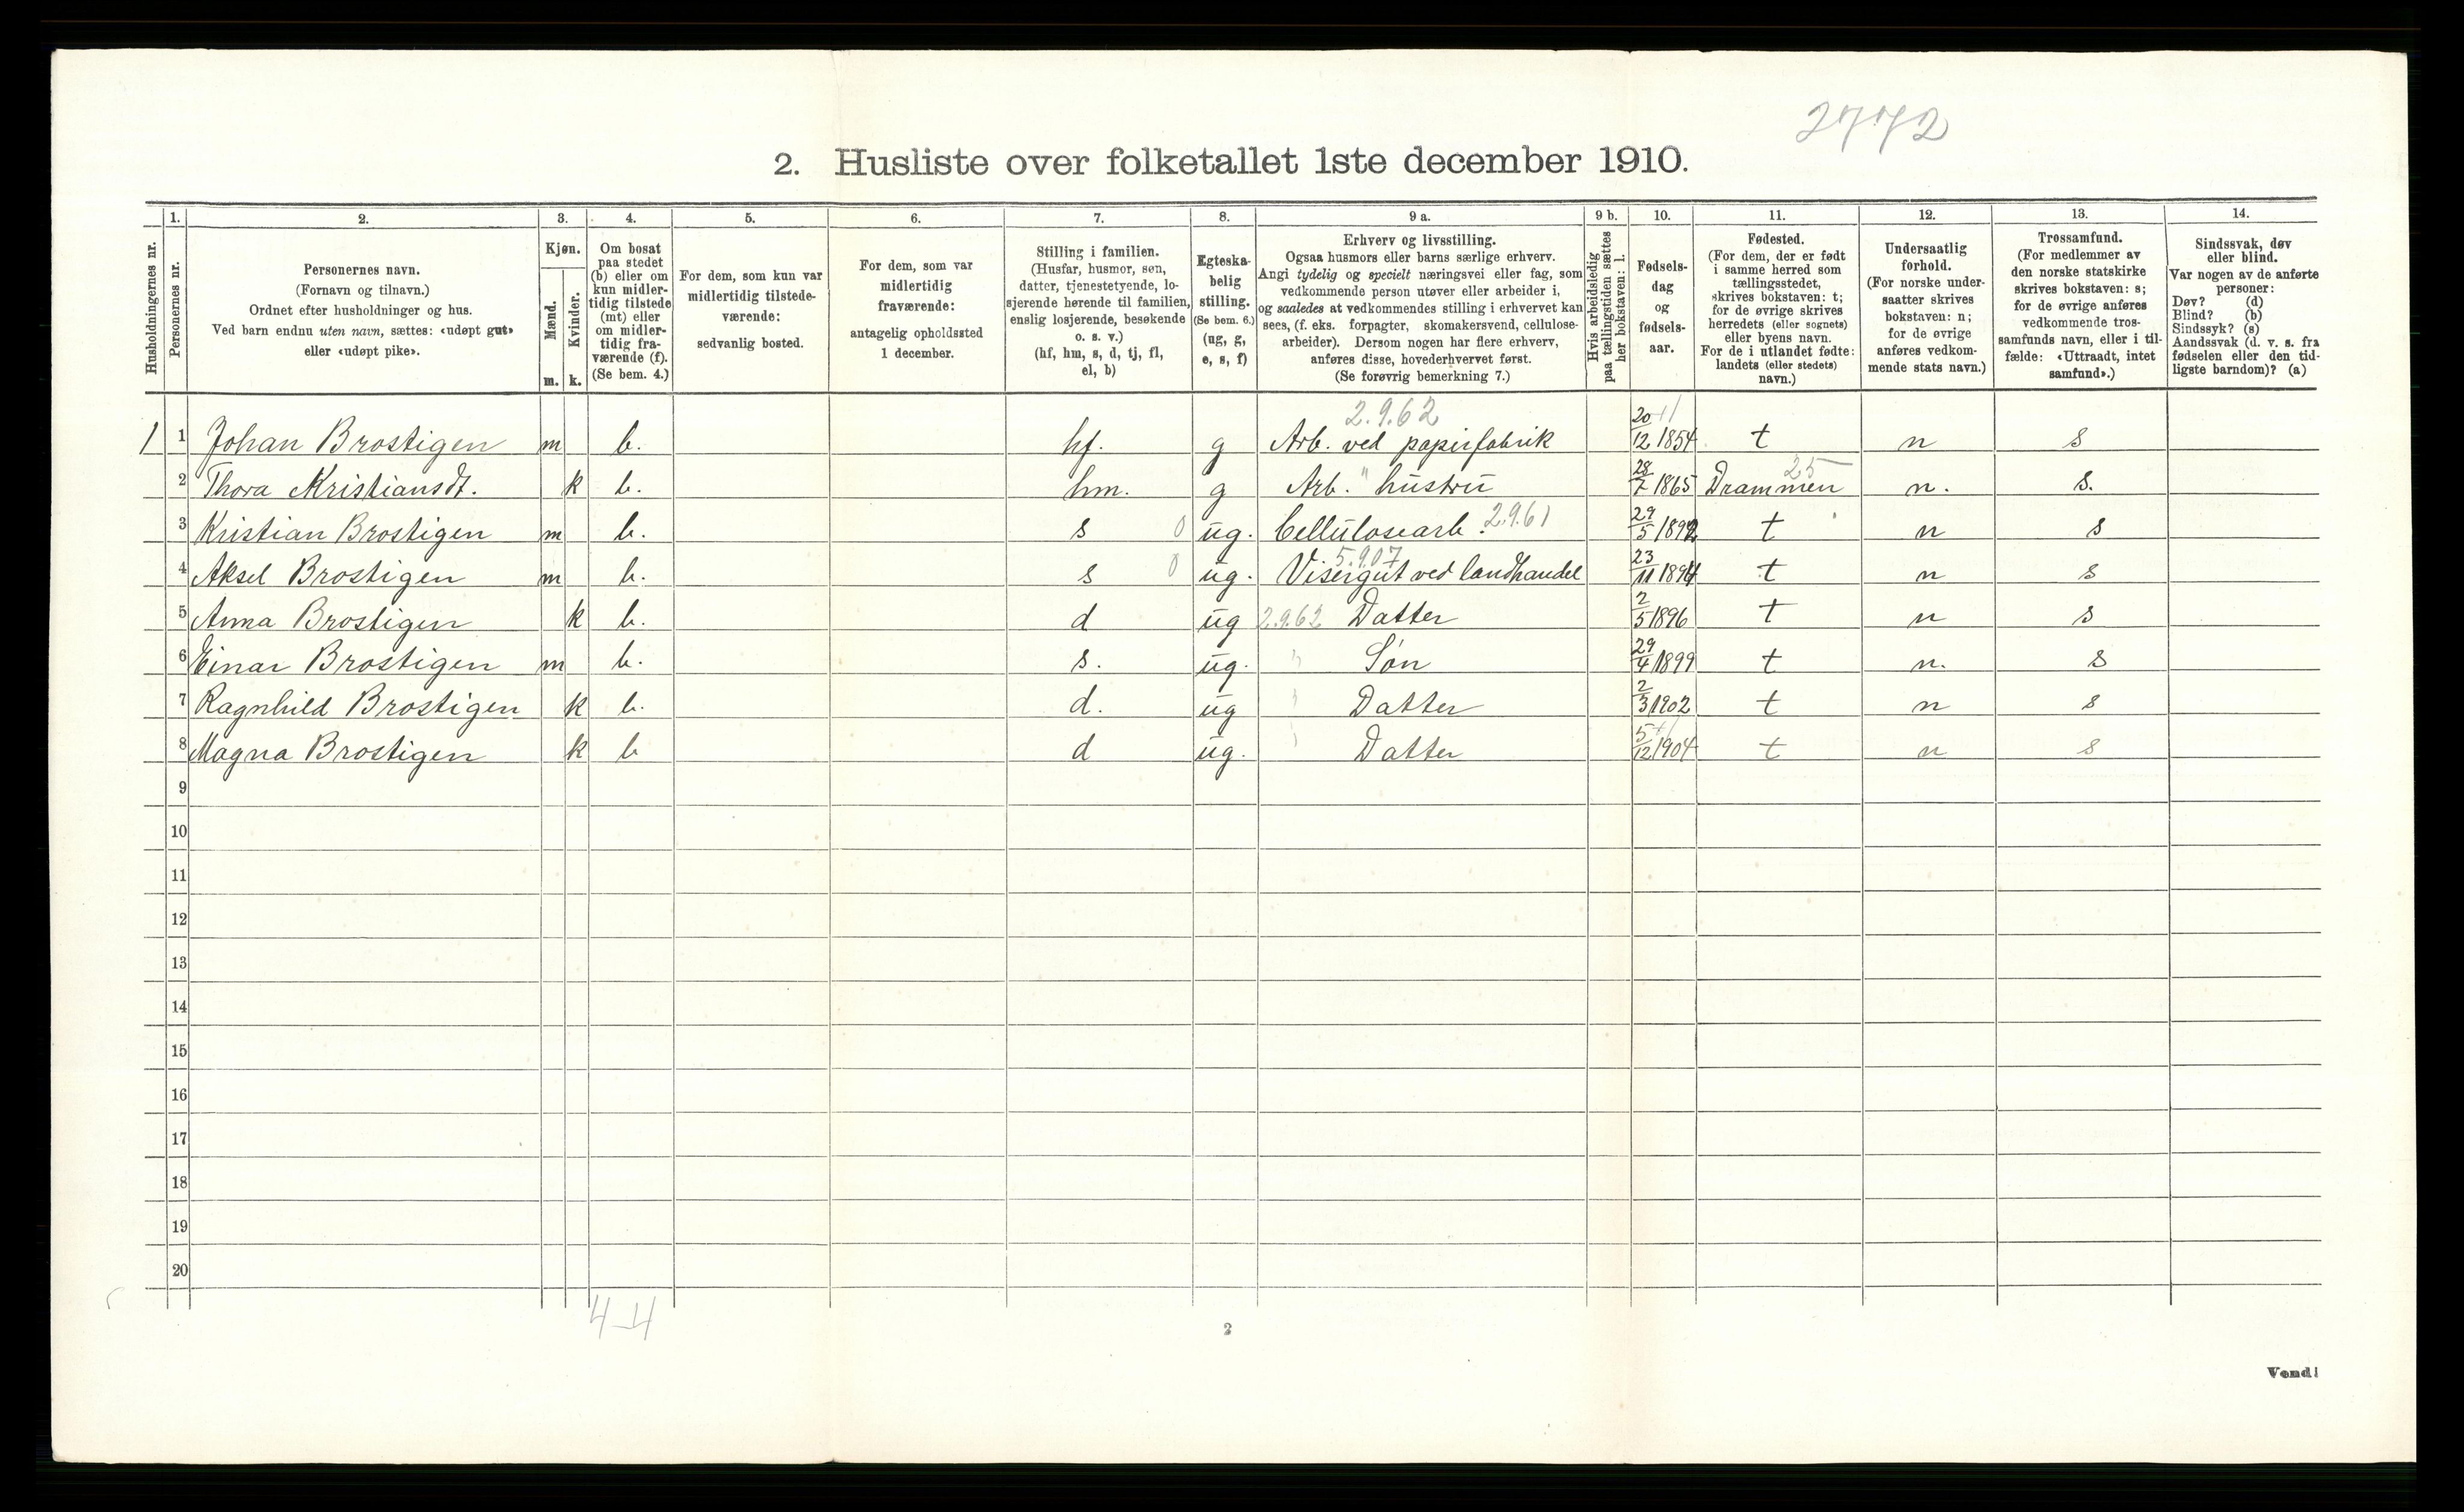 2772
2. Husliste over folketallet 1ste december 1910.
1. 2. 3. 4. 5. 6. 7. 8. 9 a. 9 b. 10. 11. 12. 13. 14.
Husholdningernes nr.
Personernes nr.
Personernes navn.
(Fornavn og tilnavn.)
Ordnet efter husholdninger og hus.
Ved barn endnu uten navn, sættes: «udøpt gut»
eller «udøpt pike».
Kjøn.
Mænd.
Kvinder.
m. k.
Om bosat
paa stedet
(b) eller om
kun midler-
tidig tilstede
(mt) eller
om midler-
tidig fra-
værende (f).
(Se bem. 4.)
For dem, som kun var
midlertidig tilstede-
værende:
sedvanlig bosted.
For dem, som var
midlertidig
fraværende:
antagelig opholdssted
1 december.
Stilling i familien.
(Husfar, husmor, søn,
datter, tjenestetyende, lo-
sjerende hørende til familien,
enslig losjerende, besøkende
o. s. v.)
(hf, hm, s, d, tj, fl,
el, b)
Egteska-
belig
stilling.
(Se bem. 6.)
(ug, g,
e, s, f)
Erhverv og livsstilling.
Ogsaa husmors eller barns særlige erhverv.
Angi tydelig og specielt næringsvei eller fag, som
vedkommende person utøver eller arbeider i,
og saaledes at vedkommendes stilling i erhvervet kan
sees, (f. eks. forpagter, skomakersvend, cellulose-
arbeider). Dersom nogen har flere erhverv,
anføres disse, hovederhvervet først.
(Se forøvrig bemerkning 7.)
Hvis arbeidsledig
paa tællingstiden sættes
her bokstaven: l.
Fødsels-
dag
og
fødsels-
aar.
Fødested.
(For dem, der er født
i samme herred som
tællingsstedet,
skrives bokstaven: t;
for de øvrige skrives
herredets (eller sognets)
eller byens navn.
For de i utlandet fødte:
landets (eller stedets)
navn.)
Undersaatlig
forhold.
(For norske under-
saatter skrives
bokstaven: n;
for de øvrige
anføres vedkom-
mende stats navn.)
Trossamfund.
(For medlemmer av
den norske statskirke
skrives bokstaven: s;
for de øvrige anføres
vedkommende tros-
samfunds navn, eller i til-
fælde: «Uttraadt, intet
samfund».)
Sindssvak, døv
eller blind.
Var nogen av de anførte
personer:
Døv? (d)
Blind? (b)
Sindssyk? (s)
Aandssvak (d. v. s. fra
fødselen eller den tid-
ligste barndom)? (a)
2.9.62
1 1 Johan Brostigen m b. hf. g Arb. ved papirfabrik 20/12 1854 t n s
25
2 Thora Kristiansdt. k b. hm. g Arb. " hustru 28/7 1865 Drammen n. s.
3 Kristian Brostigen m b. s 0 ug. Cellulosearb. 2.9.61 29/5 1892 t n s
5.907
4 Aksel Brostigen m b. s 0 ug. Visergut ved landhandel 23/11 1894 t n s
5 Anna Brostigen k b. d ug 2.9.62 Datter 2/5 1896 t n s
6 Einar Brostigen m b. s. ug. " Søn 29/4 1899 t n. s
7 Ragnhild Brostigen k b. d. ug " Datter 2/3 1902 t n s
8 Magna Brostigen k b d ug. " Datter 5/12 1904 t n s
9
10
11
12
13
14
15
16
17
18
19
20
4-4
2
Vend!